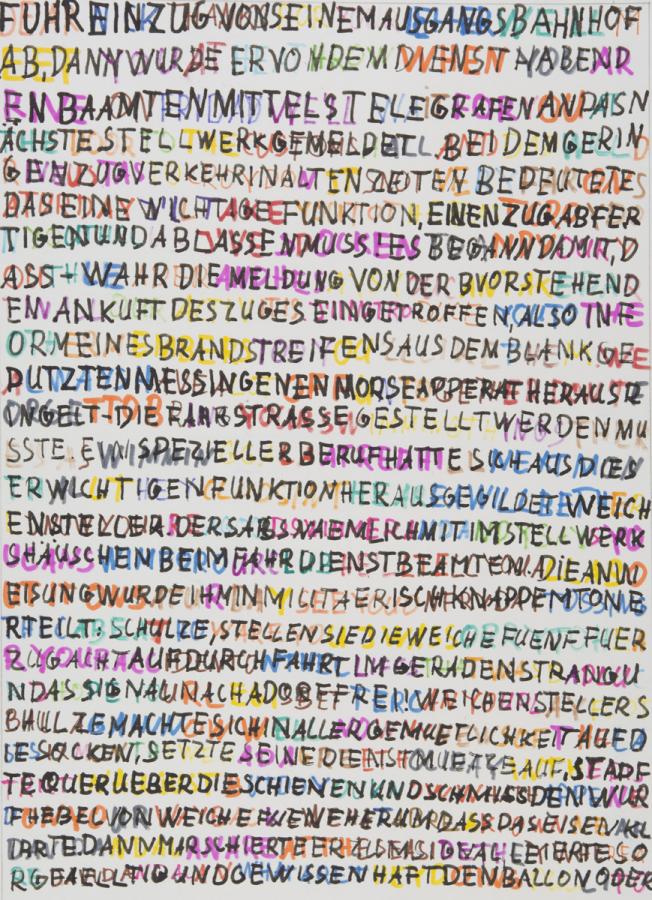 FUHR EIN ZUG VON SEINEM AUSGANGSBAHNHOF
AB, DANN WURDE ER VON DEM DIENST HABEND
EN BAAMTEN MITTELS TELEGRAFEN AN DAS N
ÄCHSTE STELLWERK GEMELDET. BEI DEM GERIN
GEN ZUGVERKEHR IN ALTEN ZEITEN BEDEUTETE
DAS EINE WICHTAGE FUNKTION, EINEN ZUG ABFER
TIGEN UND ABLASSEN MUSS. ES BEGANN DAMIT, D
ASS WAHR DIE MELDUNG VON DER BVORSTEHEND
EN ANKUFT DES ZUGES EINGETROFFEN, ALSO IN F
ORM EINES BRANDSTREIFENS AUS DEM BLANK GE
PUTZTEN MESSINGENEN MORSEAPPERAT HERAUS
GESTELLT WERDEN MU
SSTE. EIN SPEZIELLER BERUF HATTE SICH AUS DIES
ER WICHTIGEN FUNKTION HERAUSGEWILDET, WEICH
ENSTELLER. DER SASS NAEMLICH MIT IM STELLWERK
SHÄUSCHEN BEIM FAHRDIENSTBEAMTEN. DIE ANW
EISUNG WURDE IHM IN MILITAERISCH KNAPPEM TONE
RTEILT: SCHULZE, STELLEN SIE DIE WEICHE FUENF FUER
ZUG ACHT AUF DURCHFAHRT IM GERADEN STRANG U
ND AS SIGNAL NACH ADORF FREI. WEICHENSTELLER S
CHULZE MACHTE SICH IN ALLER GEMUETLICHKEIT AUF D
IE SOCKEN, SETZTE SEINE DIENSTMUETZE AUF, STAPF
TE QUER UEBER DIE SCHIENEN UND SCHMISS DEN WUR
FHEBEL VON WEICHE FUENF HERUM DASS DAS EISEN KL
IRRTE. DANN MARSCHIERTE ER
RGFAELLTIG UND GEWISSENHAFT DEN BALLON ODER